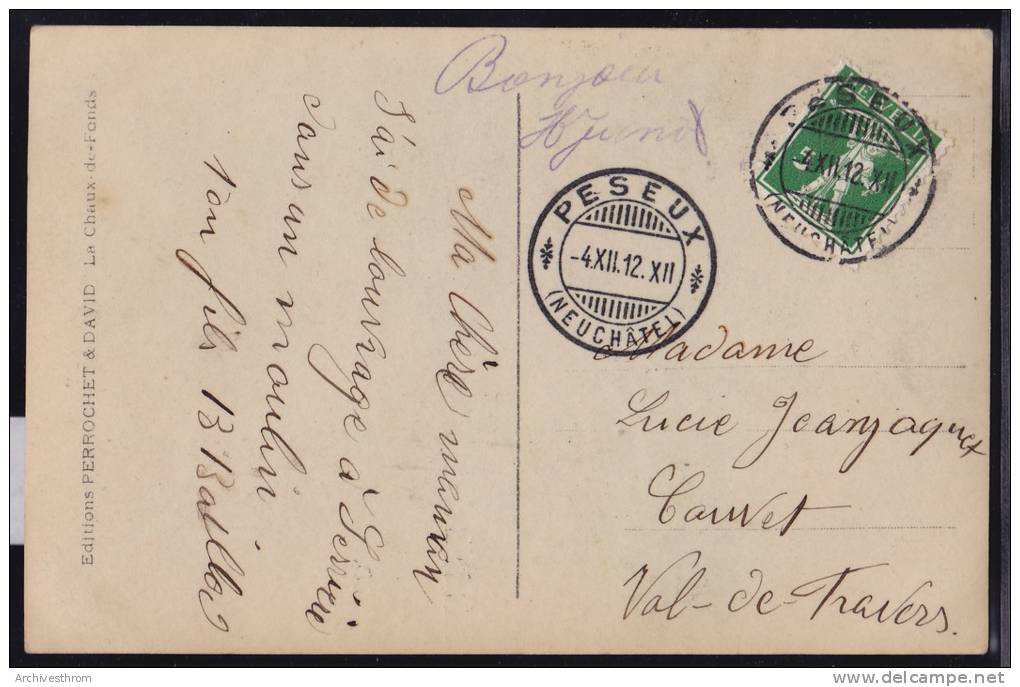 Editions PERROCHET & DAVID La Chaux-de-Fonds
Bonjour
Ma Chère maman
J'ai de louvrage à Serriere
dans un moulin
Ton fils B Baillod
HELVETIA
5
PESEUX
-4.XII.12.XII
(NEUCHÂTEL)
PESEUX
-4.XII.12.XII
(NEUCHÂTEL)
Madame
Lucie Jeanjaquet
Couvet
Val-de-Travers.
Archivesthrom
www.delcampe.net